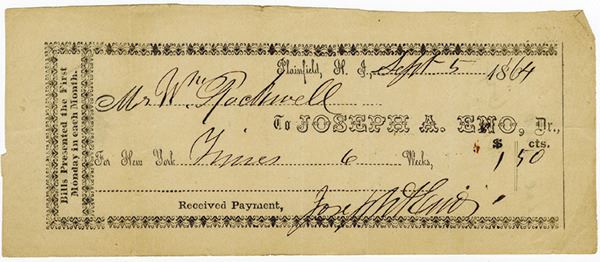 Bills Presented the First
Monday in each Month.
Plainfield, N. J., Sept 5 1864
Mr Wm Rockwell
To JOSEPH A. ENO, Dr.,
$ cts.
For New York Times 6 Weeks, 1 50
Received Payment, Joseph A Eno